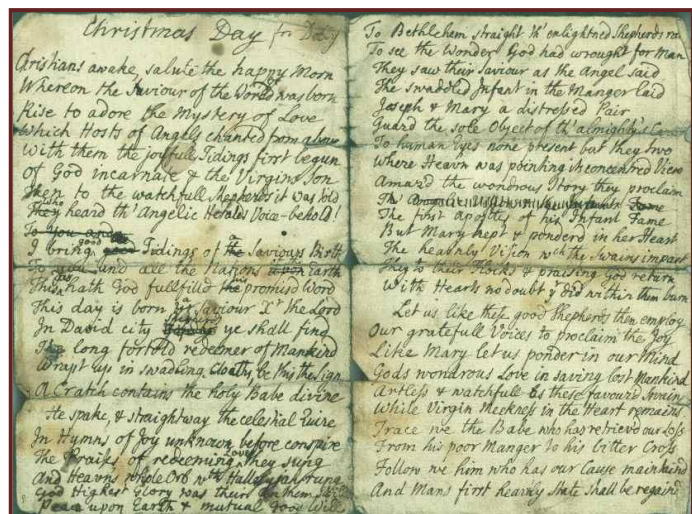 Christmas Day for Dolly
Christians awake, salute the happy Morn
Whereon the Saviour of the World was born
Rise to adore the Mystery of Love
Which Hosts of Angels chanted from above
With them the joyfull Tidings first begun
of God incarnate & the Virgins Son
Then to the watchfull Shepherds it was told
who heard th' Angelic Heralds Voice - behold!
To you and
I bring good Tidings of a Saviours Birth
To you and all the Nations upon Earth
This day hath God fullfilled his promisd Word
This day is born a Saviour Xt the Lord
In David city ye shall find
The long foretold redeemer of Mankind
Wrapt up in swadling Cloaths, be this the Sign
A Cratch contains the holy Babe divine
He spake, & straightway the celestial Quire
In Hymns of Joy unknown before conspire
The Praises of redeeming Love they sung
And Heavns whole Orb wth Hallelujahs rung
God Highest Glory was their Anthem still
Peace upon Earth & mutual good Will
To Bethlehem straight th' enlightned Shepherds ran
To see the Wonder God had wrought for Man
They saw their Saviour as the Angel said
The swaddled Infant in the Manger laid
Joseph & Mary a distressed Pair
Guard the sole Object of th' almighty's Care
To human Eyes none present but they two
Where Heavn was pointing its concentred View
Amazd the wondrous Story they proclaim
The first Apostles of his Infant Fame
But Mary kept & ponderd in her Heart
The heavnly Vision wch the Swains impart
They to their Flocks & praising God return
With Hearts no doubt yt did within them burn
Let us like these good Shepherds then employ
Our gratefull Voices to proclaim the Joy
Like Mary let us ponder in our Mind
Gods wondrous Love in saving lost Mankind
Artless & watchfull as these favourd Swains
While Virgin Meekness in the Heart remains
Trace we the Babe who has retrievd our Loss
From his poor Manger to his bitter Cross
Follow we him who has our Cause maintaind
And Mans first heavnly State shall be regaind